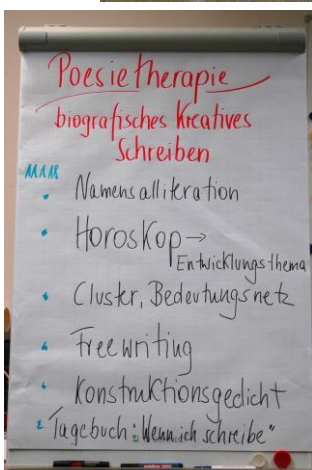 Poesietherapie
biografisches Kreatives
Schreiben
Namensalliteration
Horoskop →
Entwicklungsthema
Cluster, Bedeutungsnetz
Freewriting
Konstruktionsgedicht
Tagebuch: "Wenn ich schreibe"